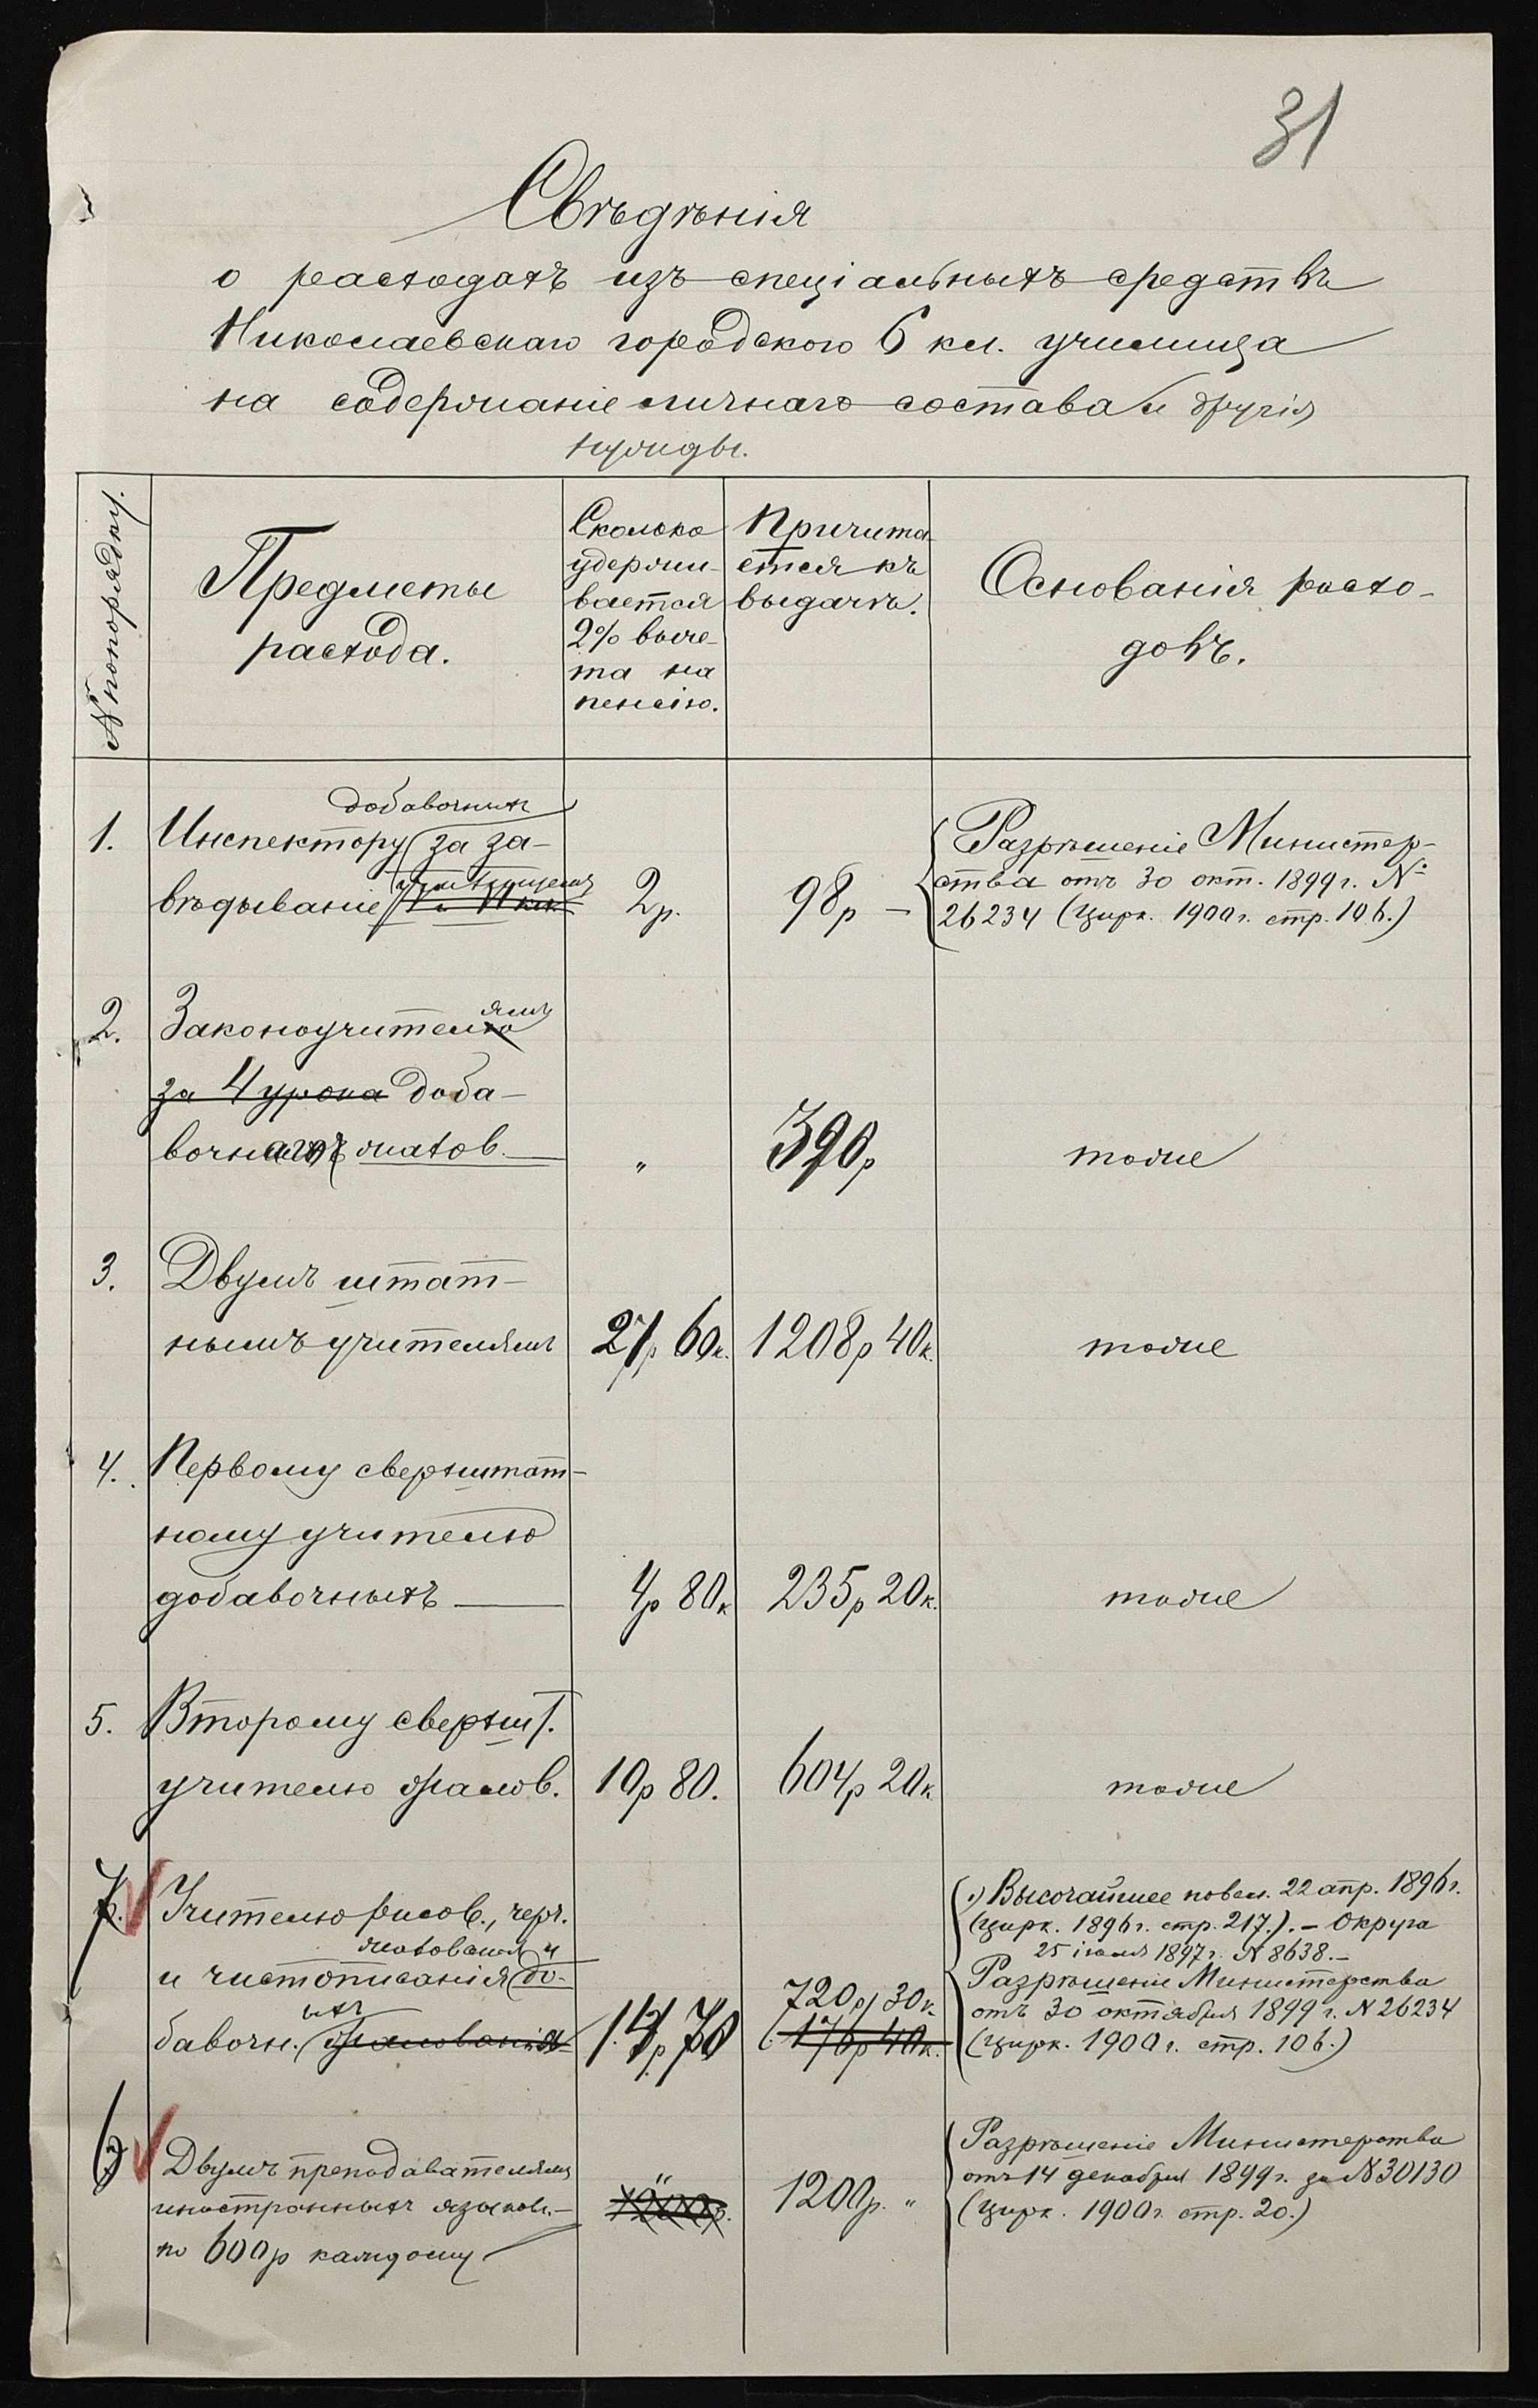 31
Свѣдѣнія
о расходахъ изъ спеціальныхъ средствъ
Николаевскаго городского 6 кл. училища
на содержаніе личнаго состава и другія
нужды.
№ по порядку.
Предметы
расхода.
Сколько
удержи-
вается
2% выче-
та на
пенсію.
Причита
ется къ
выдачѣ.
Основанія расхо-
довъ.
добавочныхъ
1. Инспектору за за-
вѣдываніе училищемъ 2р. 98р –
Разрѣшеніе Министер-
ства отъ 30 окт. 1899г. №
26234 (Цирк. 1900г. стр. 106.)
2. Законоучителямъ
за 4 урока доба-
вочныхъ жалов. „ 390р тоже
3. Двумъ штат-
нымъ учителямъ 27р 60к. 1208р 40к. тоже
4. Первому сверхштат-
ному учителю
добавочныхъ 4р 80к 235р 20к. тоже
5. Второму сверхшт.
учителю жалов. 10р 80. 604р 20к тоже
7. Учителю рисов., черч.
жалованія и
и чистописанія до-
ыхъ
бавочн. жалованія 14р 70 720р 30к.
176р 40к.
1) Высочайшее повел. 22 апр. 1896г.
(цирк. 1896г. стр. 217.). – Округа
25 іюля 1897г. № 8638. –
Разрѣшеніе Министерства
отъ 30 октября 1899 г. № 26234
(Цирк. 1900г. стр. 106.)
6 Двумъ преподавателямъ
иностранныхъ языковъ –
по 600р каждому „ 1200р. „
Разрѣшеніе Министерства
отъ 14 декабря 1899г. за № 30130
(Цирк. 1900г. стр. 20.)